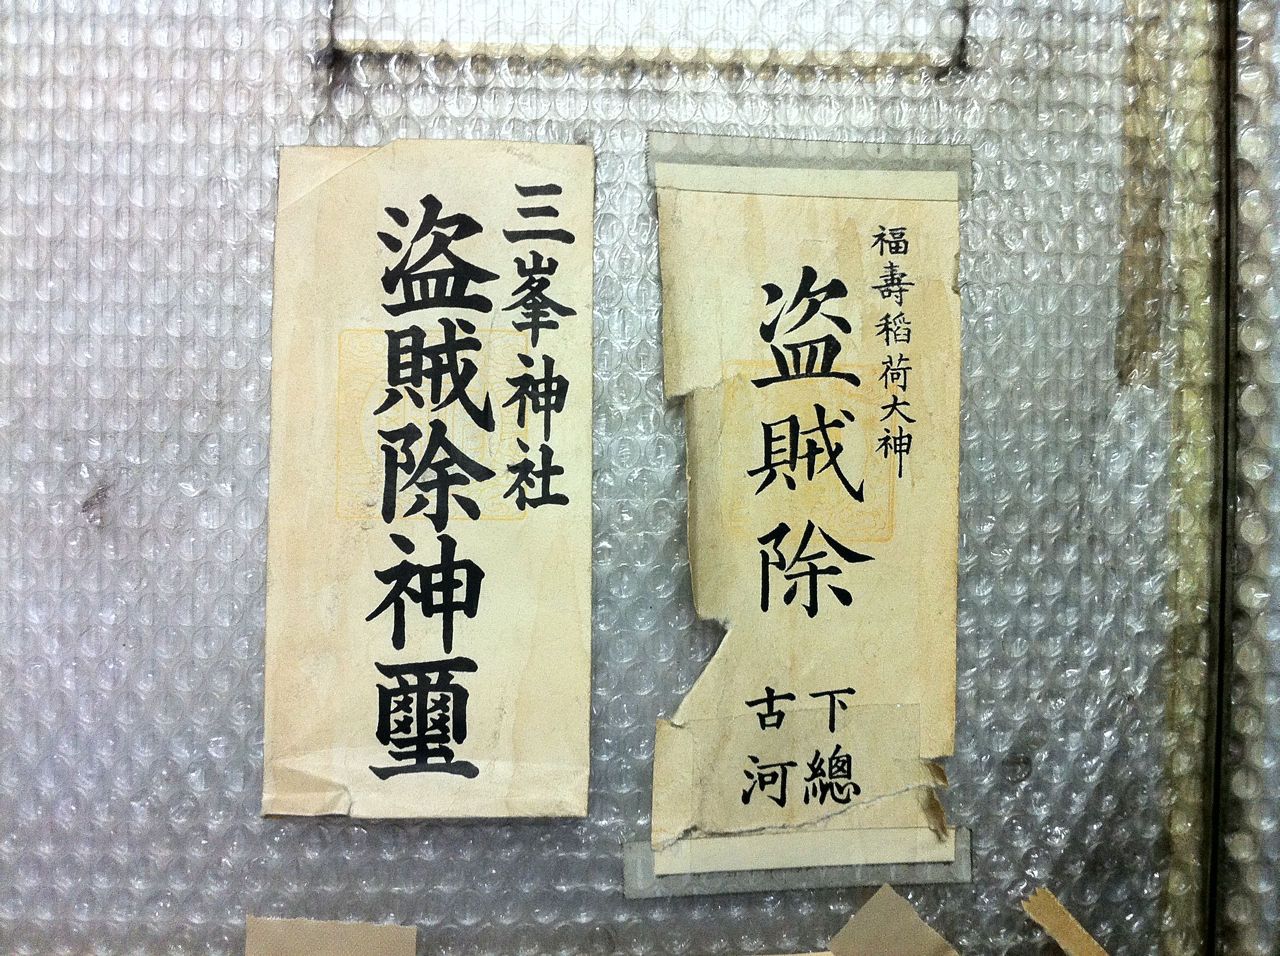 三峯神社
盗賊除神璽
福壽稻荷大神
盗賊除
下總
古河